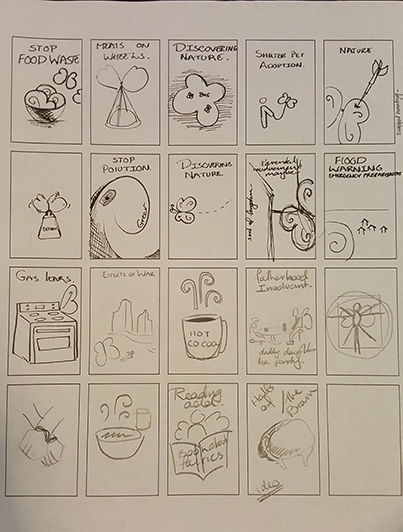 STOP
FOOD WASTE
MEALS ON
WHEELS.
DISCOVERING
NATURE.
SHELTER PET
ADOPTION.
NATURE
STOP
POLUTION.
Discovering
NATURE.
Parental
involvement
maybe?
FLOOD
WARNING
EMERGENCY PREPAREDNESS
GAS leaks
Effects of War
HOT
COCOA
Fatherhood
Involvment.
daddy daughter
tea party.
Reading
Book about
fairies
of the
Brain
idea